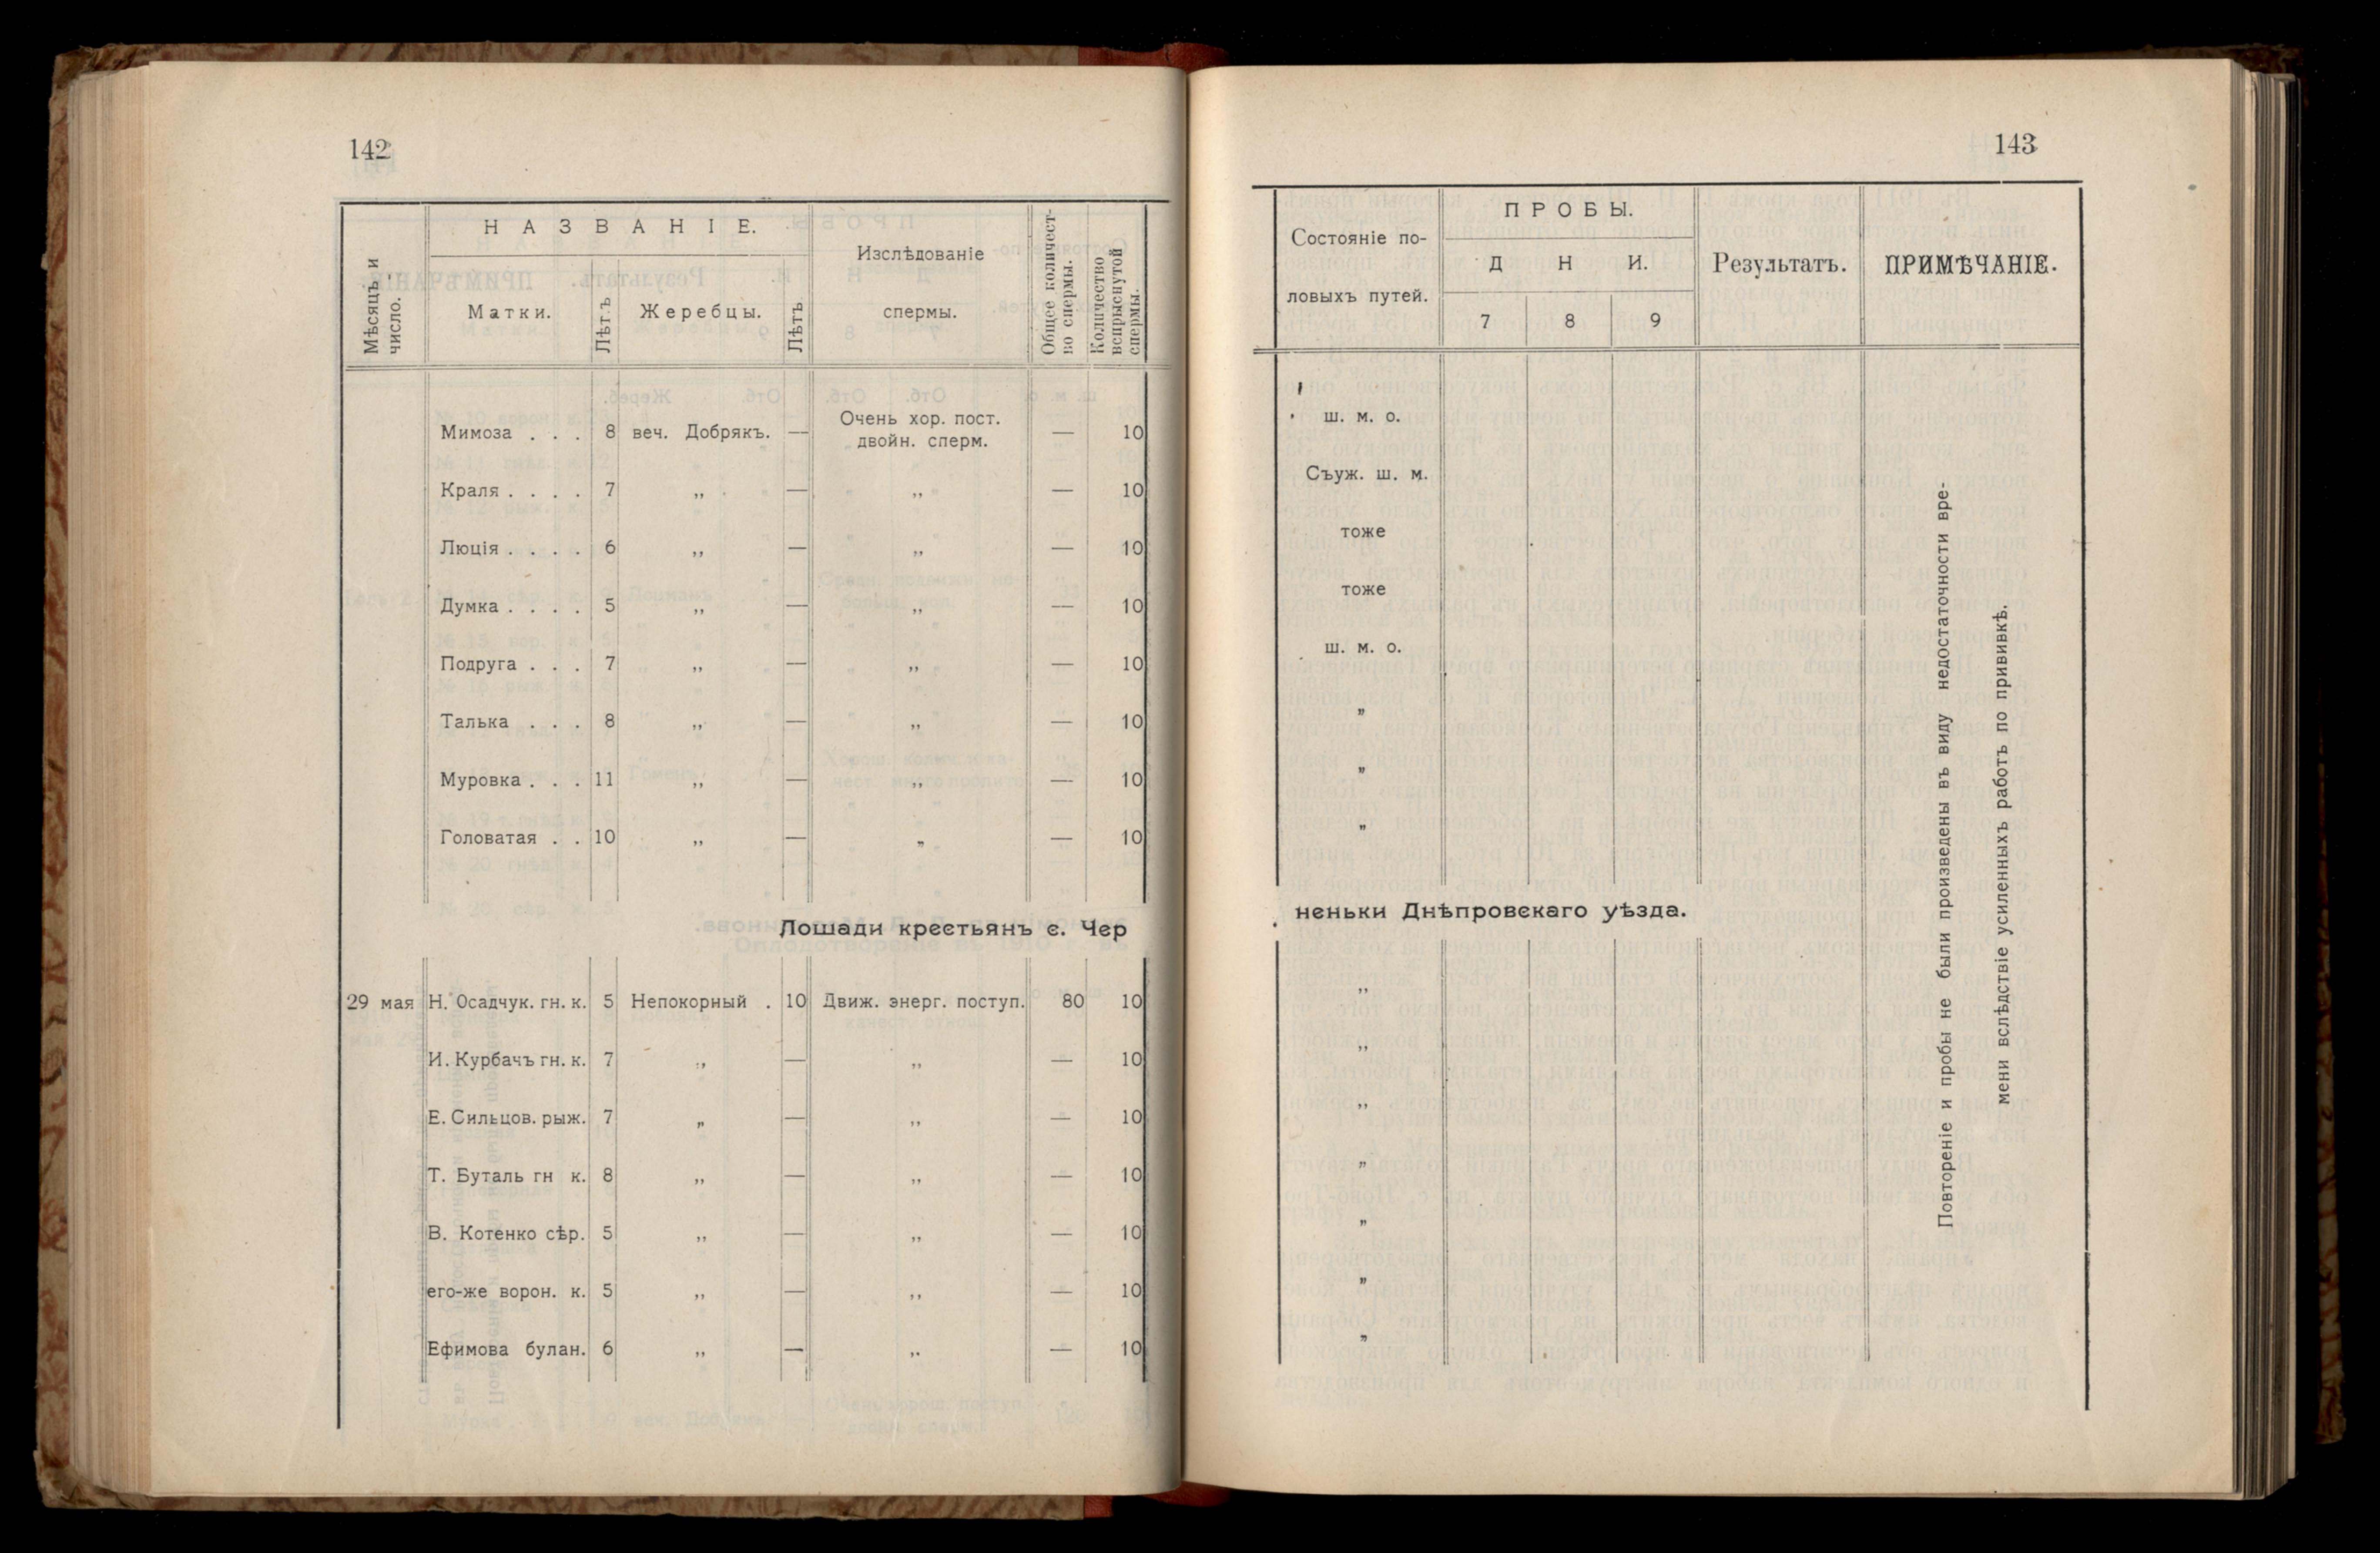 142
Мѣсяцъ и
число.
НАЗВАНІЕ.
Матки.
Лѣтъ
Жеребцы.
Лѣтъ
Изслѣдованіе
спермы.
Общее количест-
во спермы.
Количество
вспрыснутой
спермы.
Мимоза . . . 8 веч. Добрякъ. — Очень хор. пост. двойн. сперм. — 10
Краля . . . . 7 „ — „ — 10
Люція . . . . 6 „ — „ — 10
Думка . . . . 5 „ — „ — 10
Подруга . . . 7 „ — „ — 10
Талька . . . 8 „ — „ — 10
Муровка . . . 11 „ — „ — 10
Головатая . . 10 „ — „ — 10
Лошади крестьянъ с. Чер
29 мая Н. Осадчук. гн. к. 5 Непокорный . 10 Движ. энерг. поступ. 80 10
И. Курбачъ гн. к. 7 „ — „ — 10
Е. Сильцов. рыж. 7 „ — „ — 10
Т. Буталь гн к. 8 „ — „ — 10
В. Котенко сѣр. 5 „ — „ — 10
его-же ворон. к. 5 „ — „ — 10
Ефимова булан. 6 „ — „ — 10
143
Состояніе по-
ловыхъ путей.
ПРОБЫ.
Д Н И.
7 8 9
Результатъ.
ПРИМѢЧАНІЕ.
ш. м. о.
Съуж. ш. м.
тоже
тоже
ш. м. о.
„
„
„
неньки Днѣпровскаго уѣзда.
„
„
„
„
„
„
„
Повтореніе и пробы не были произведены въ виду недостаточности вре-
мени вслѣдствіе усиленныхъ работъ по прививкѣ.